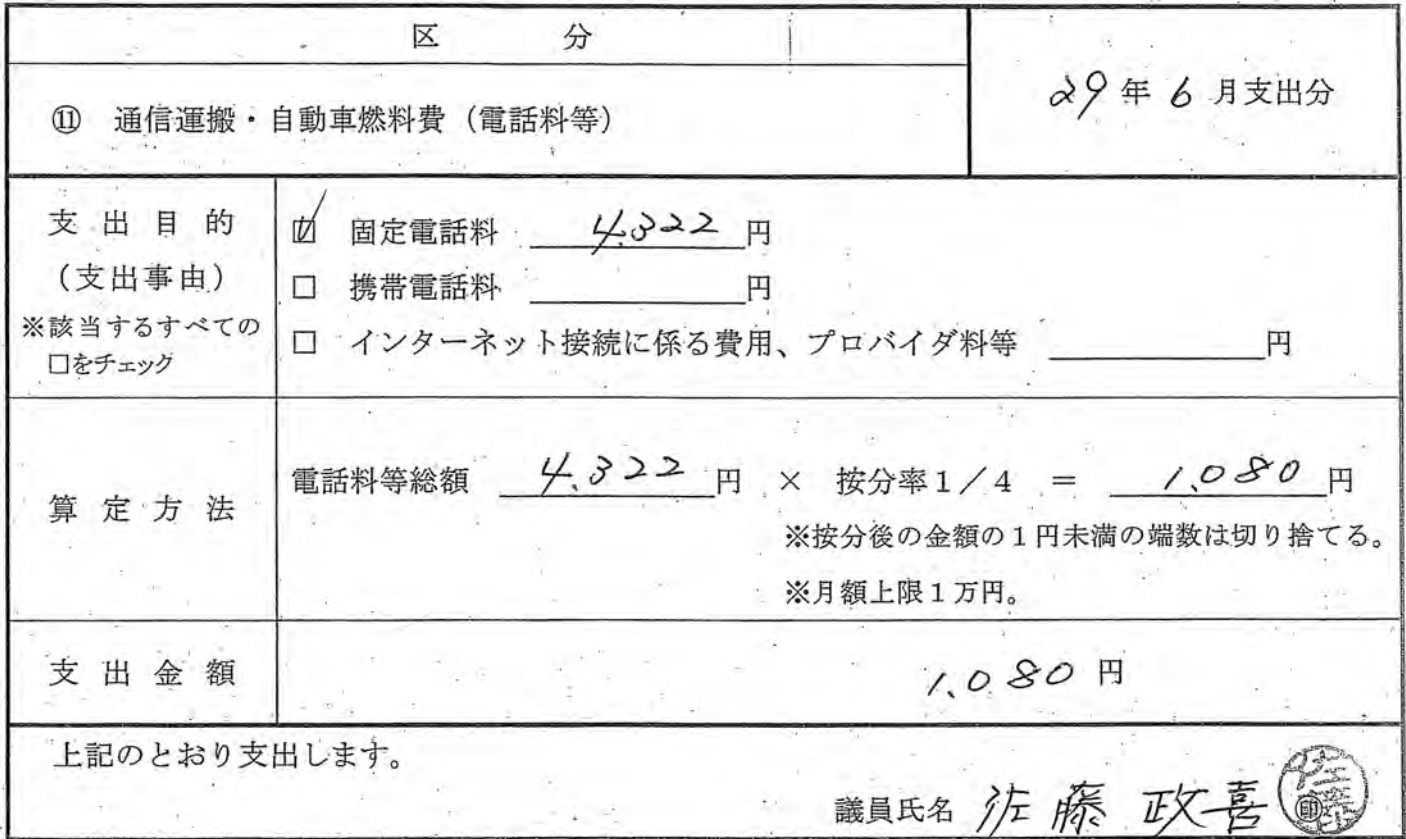 区 分
29年6月支出分
⑪ 通信運搬・自動車燃料費（電話料等）
支出目的
（支出事由）
※該当するすべての
□をチェック
☑ 固定電話料 4,322円
□ 携帯電話料 円
□ インターネット接続に係る費用、プロバイダ料等 円
算定方法
電話料等総額 4,322円 × 按分率1／4 ＝ 1,080円
※按分後の金額の1円未満の端数は切り捨てる。
※月額上限1万円。
支出金額
1,080円
上記のとおり支出します。
議員氏名 佐藤 政喜 ㊞
佐藤